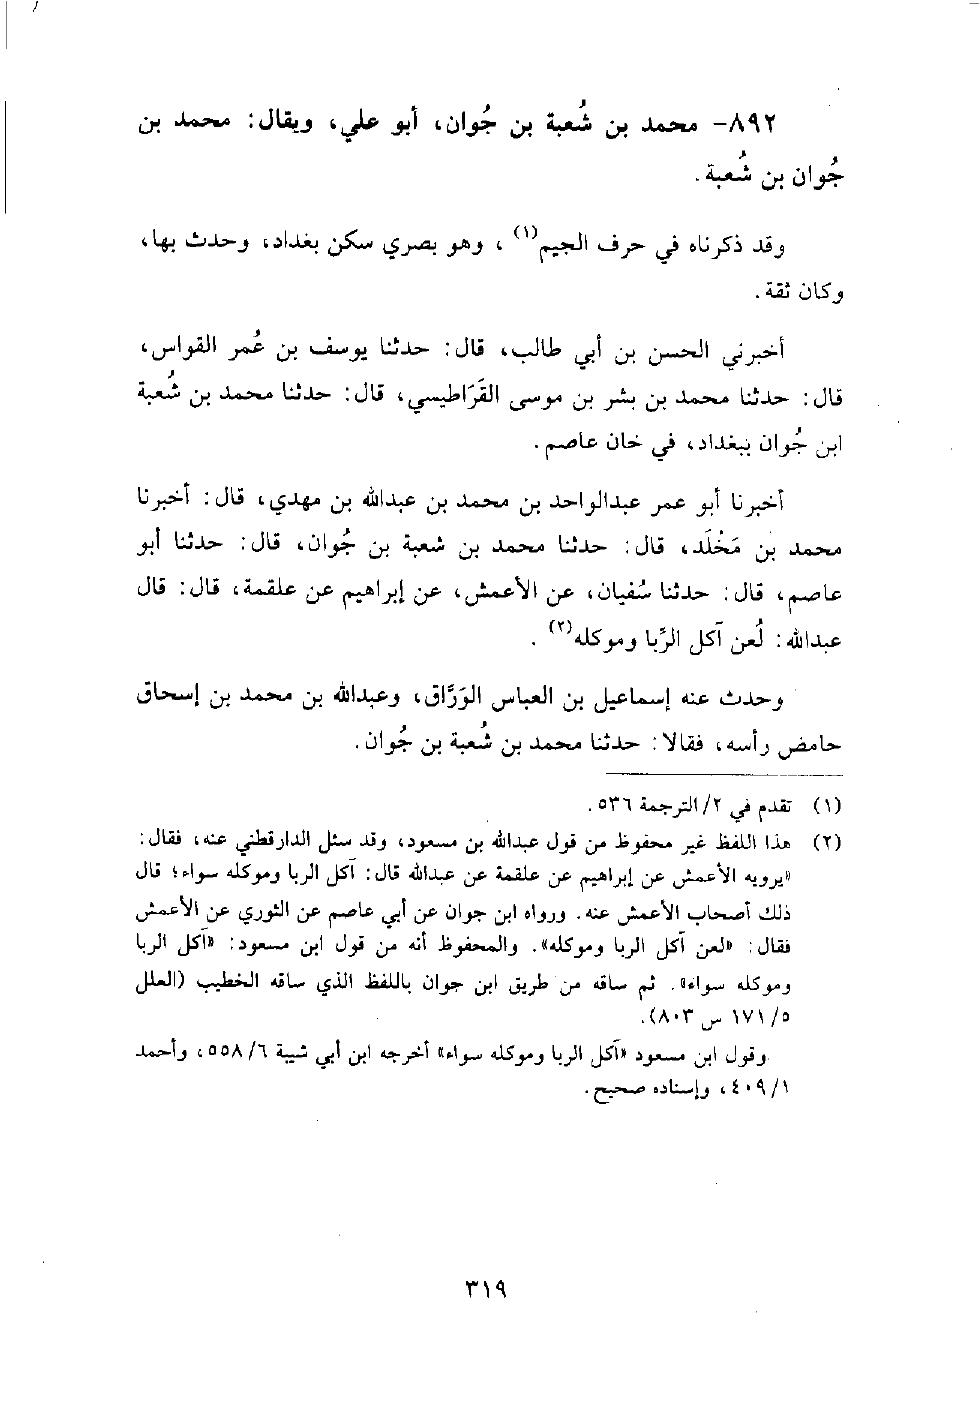 ٨٩٢- محمد بن شُعبة بن جُوان، أبو علي، ويقال: محمد بن
جُوان بن شُعبة.
وقد ذكرناه في حرف الجيم(١) ، وهو بصري سكن بغداد، وحدث بها،
وكان ثقة.
أخبرني الحسن بن أبي طالب، قال: حدثنا يوسف بن عُمر القواس،
قال: حدثنا محمد بن بشر بن موسى القَرَاطيسي، قال: حدثنا محمد بن شُعبة
ابن جُوان ببغداد، في خان عاصم.
أخبرنا أبو عمر عبدالواحد بن محمد بن عبدالله بن مهدي، قال: أخبرنا
محمد بن مَخْلَد، قال: حدثنا محمد بن شعبة بن جُوان، قال: حدثنا أبو
عاصم، قال: حدثنا سُفيان، عن الأعمش، عن إبراهيم عن علقمة، قال: قال
عبدالله: لُعن آكل الرِّبا وموكله(٢) .
وحدث عنه إسماعيل بن العباس الوَرَّاق، وعبدالله بن محمد بن إسحاق
حامض رأسه، فقالا: حدثنا محمد بن شُعبة بن جُوان.
(١) تقدم في ٢/ الترجمة ٥٣٦.
(٢) هذا اللفظ غير محفوظ من قول عبدالله بن مسعود، وقد سئل الدارقطني عنه، فقال:
«يرويه الأعمش عن إبراهيم عن علقمة عن عبدالله قال: آكل الربا وموكله سواء؛ قال
ذلك أصحاب الأعمش عنه. ورواه ابن جوان عن أبي عاصم عن الثوري عن الأعمش
فقال: «لعن آكل الربا وموكله». والمحفوظ أنه من قول ابن مسعود: «آكل الربا
وموكله سواء». ثم ساقه من طريق ابن جوان باللفظ الذي ساقه الخطيب (العلل
٥/ ١٧١ س ٨٠٣).
وقول ابن مسعود «آكل الربا وموكله سواء» أخرجه ابن أبي شيبة ٦/ ٥٥٨، وأحمد
١/ ٤٠٩، وإسناده صحيح.
٣١٩